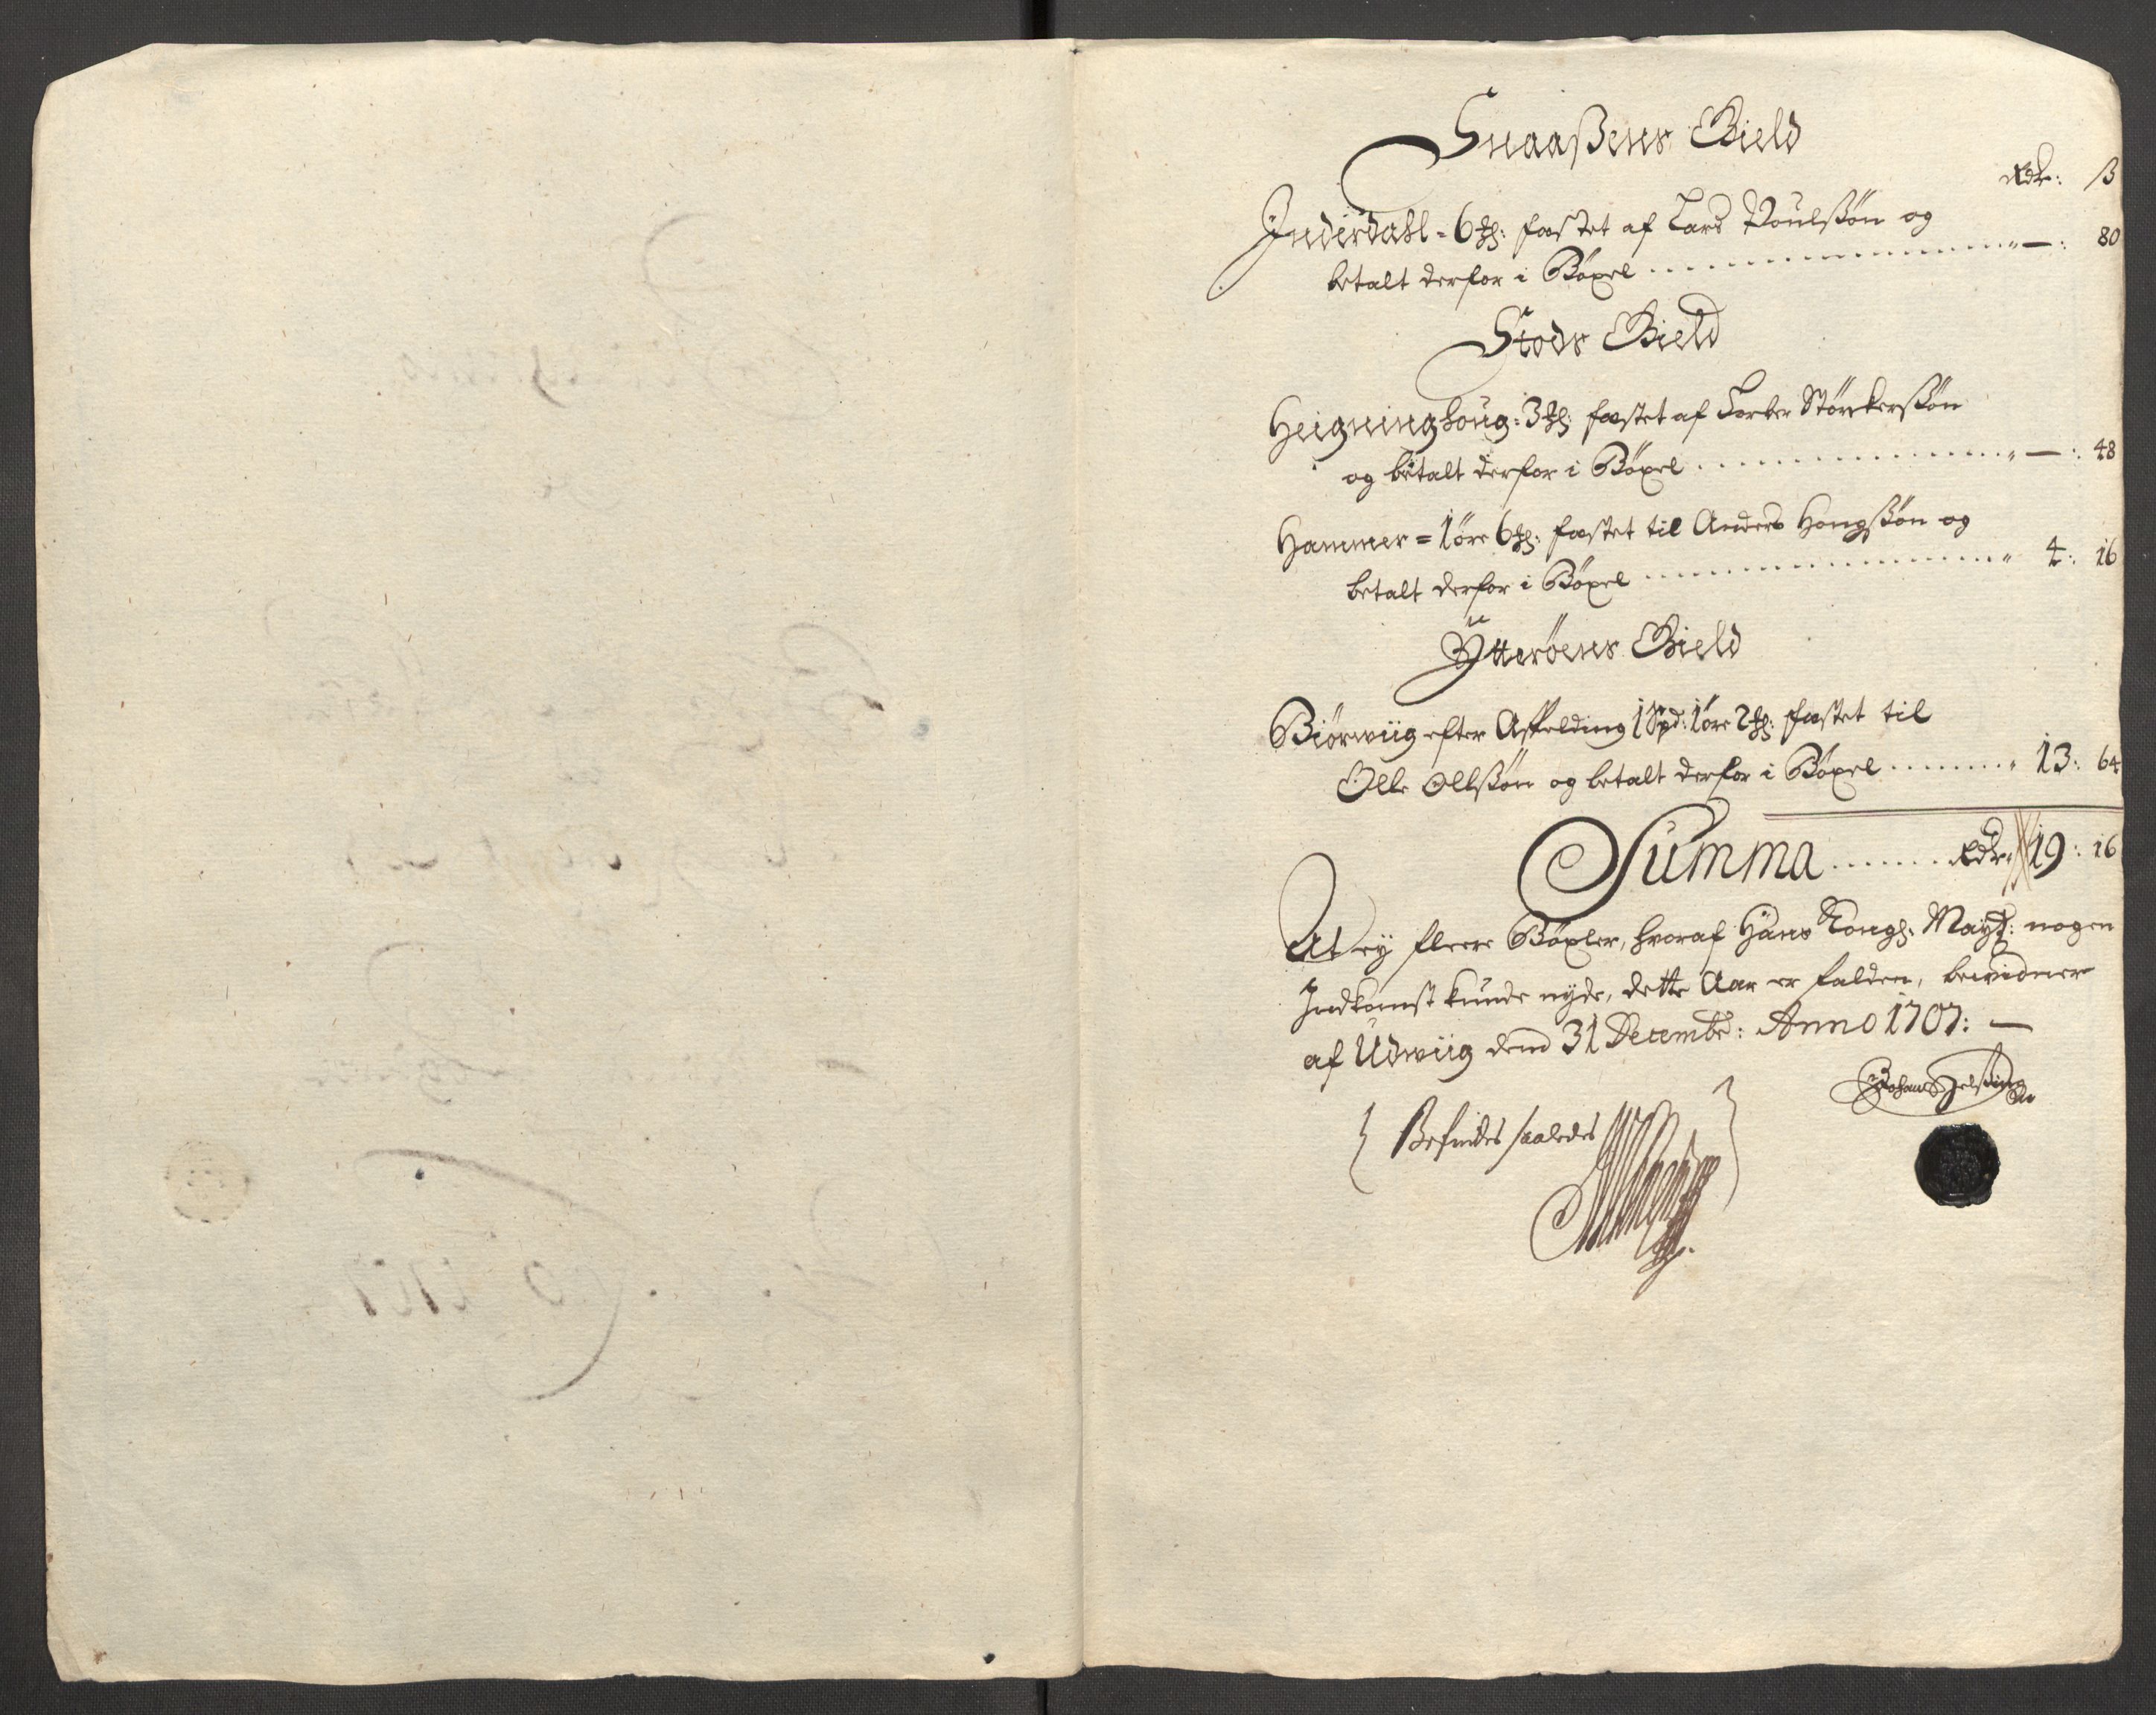 Snaaßens Gield
Rdr: ß
Inderdahl = 6 ₰: fæstet af Lars Poulssøn og
betalt derfor i Bøxel - - - - - - " — : 80
Stods Gield
Heigninghoug = 3 ₰: fæstet af Torber Størckerssøn
og betalt derfor i Bøxel - - - - - - " — : 48
Hammer = 1 øre 6 ₰: fæstet til Anders Hongssøn og
betalt derfor i Bøxel - - - - - - " 4 : 16
Ytterøens Gield
Biørwiig efter Affelding 1 Spd: 1 øre 2 ₰: fæstet til
Olle Ollssøn og betalt derfor i Bøxel - - - - " 13 : 64
Summa - - - - Rdr 19 : 16
At ey fleere Bøxler, hvoraf Hans Kongl: Mayt: nogen
Indkomst kunde nyde, dette Aar er falden, bewidner
af Udwiig dend 31 Decembr: Anno 1707: —
Johans Helsing
Befindes saaledes